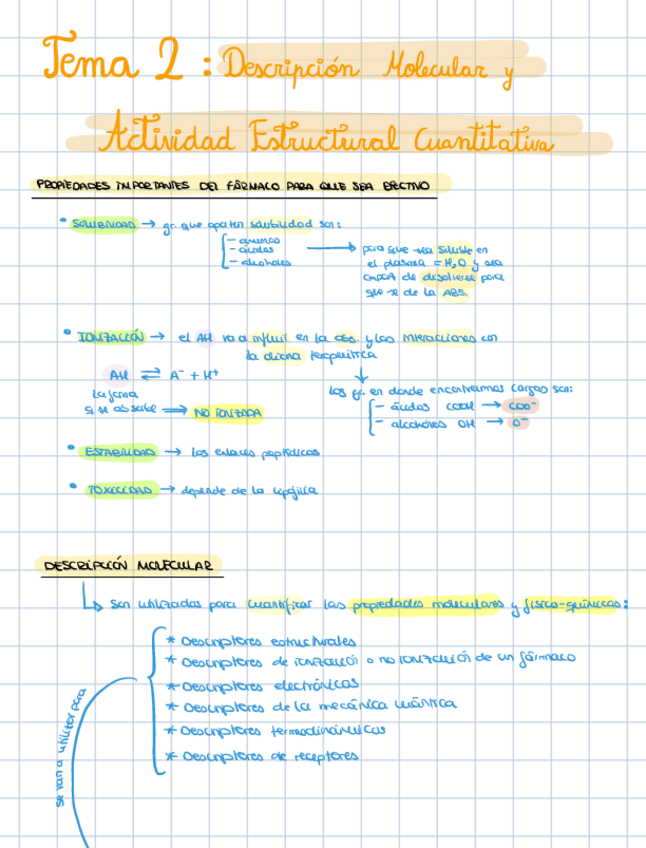 Tema 2 : Descripción Molecular y
Actividad Estructural Cuantitativa
PROPIEDADES IMPORTANTES DEL FÁRMACO PARA QUE SEA EFECTIVO
• SOLUBILIDAD → gr. que aporten solubilidad son:
- aminas
- ácidos
- alcoholes
→ para que sea soluble en
el plasma = H₂O y sea
capaz de disolverse para
de la ABS.
• IONIZACIÓN → el AH va a influir en la abs. y las interacciones con
la diana terapéutica
AH ⇄ A⁻ + H⁺
La forma
si se absorbe ⇒ NO IONIZADA
↓
los gr. en donde encontramos cargas son:
- ácidos COOH → COO⁻
- alcoholes OH → O⁻
• ESTABILIDAD → los enlaces peptídicos
• TOXICIDAD → depende de la lipofilia
DESCRIPCIÓN MOLECULAR
↳ Son utilizadas para cuantificar las propiedades moleculares y físico-químicas:
* Descriptores estructurales
* Descriptores de ionización o no ionización de un fármaco
* Descriptores electrónicos
* Descriptores de la mecánica cuántica
* Descriptores termodinámicos
* Descriptores de receptores
se van a utilizar para